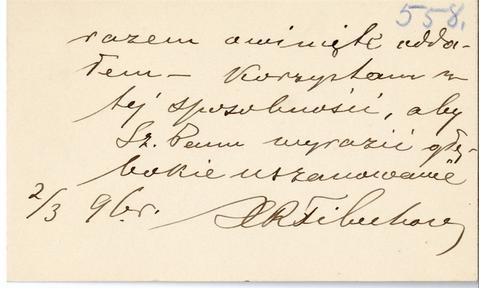 558.
razem awinięte odda-
łem — Korzystam z
tej sposobności, aby
Sz. Panu wyrazić głę-
bokie uszanowanie
2/3 96 r.